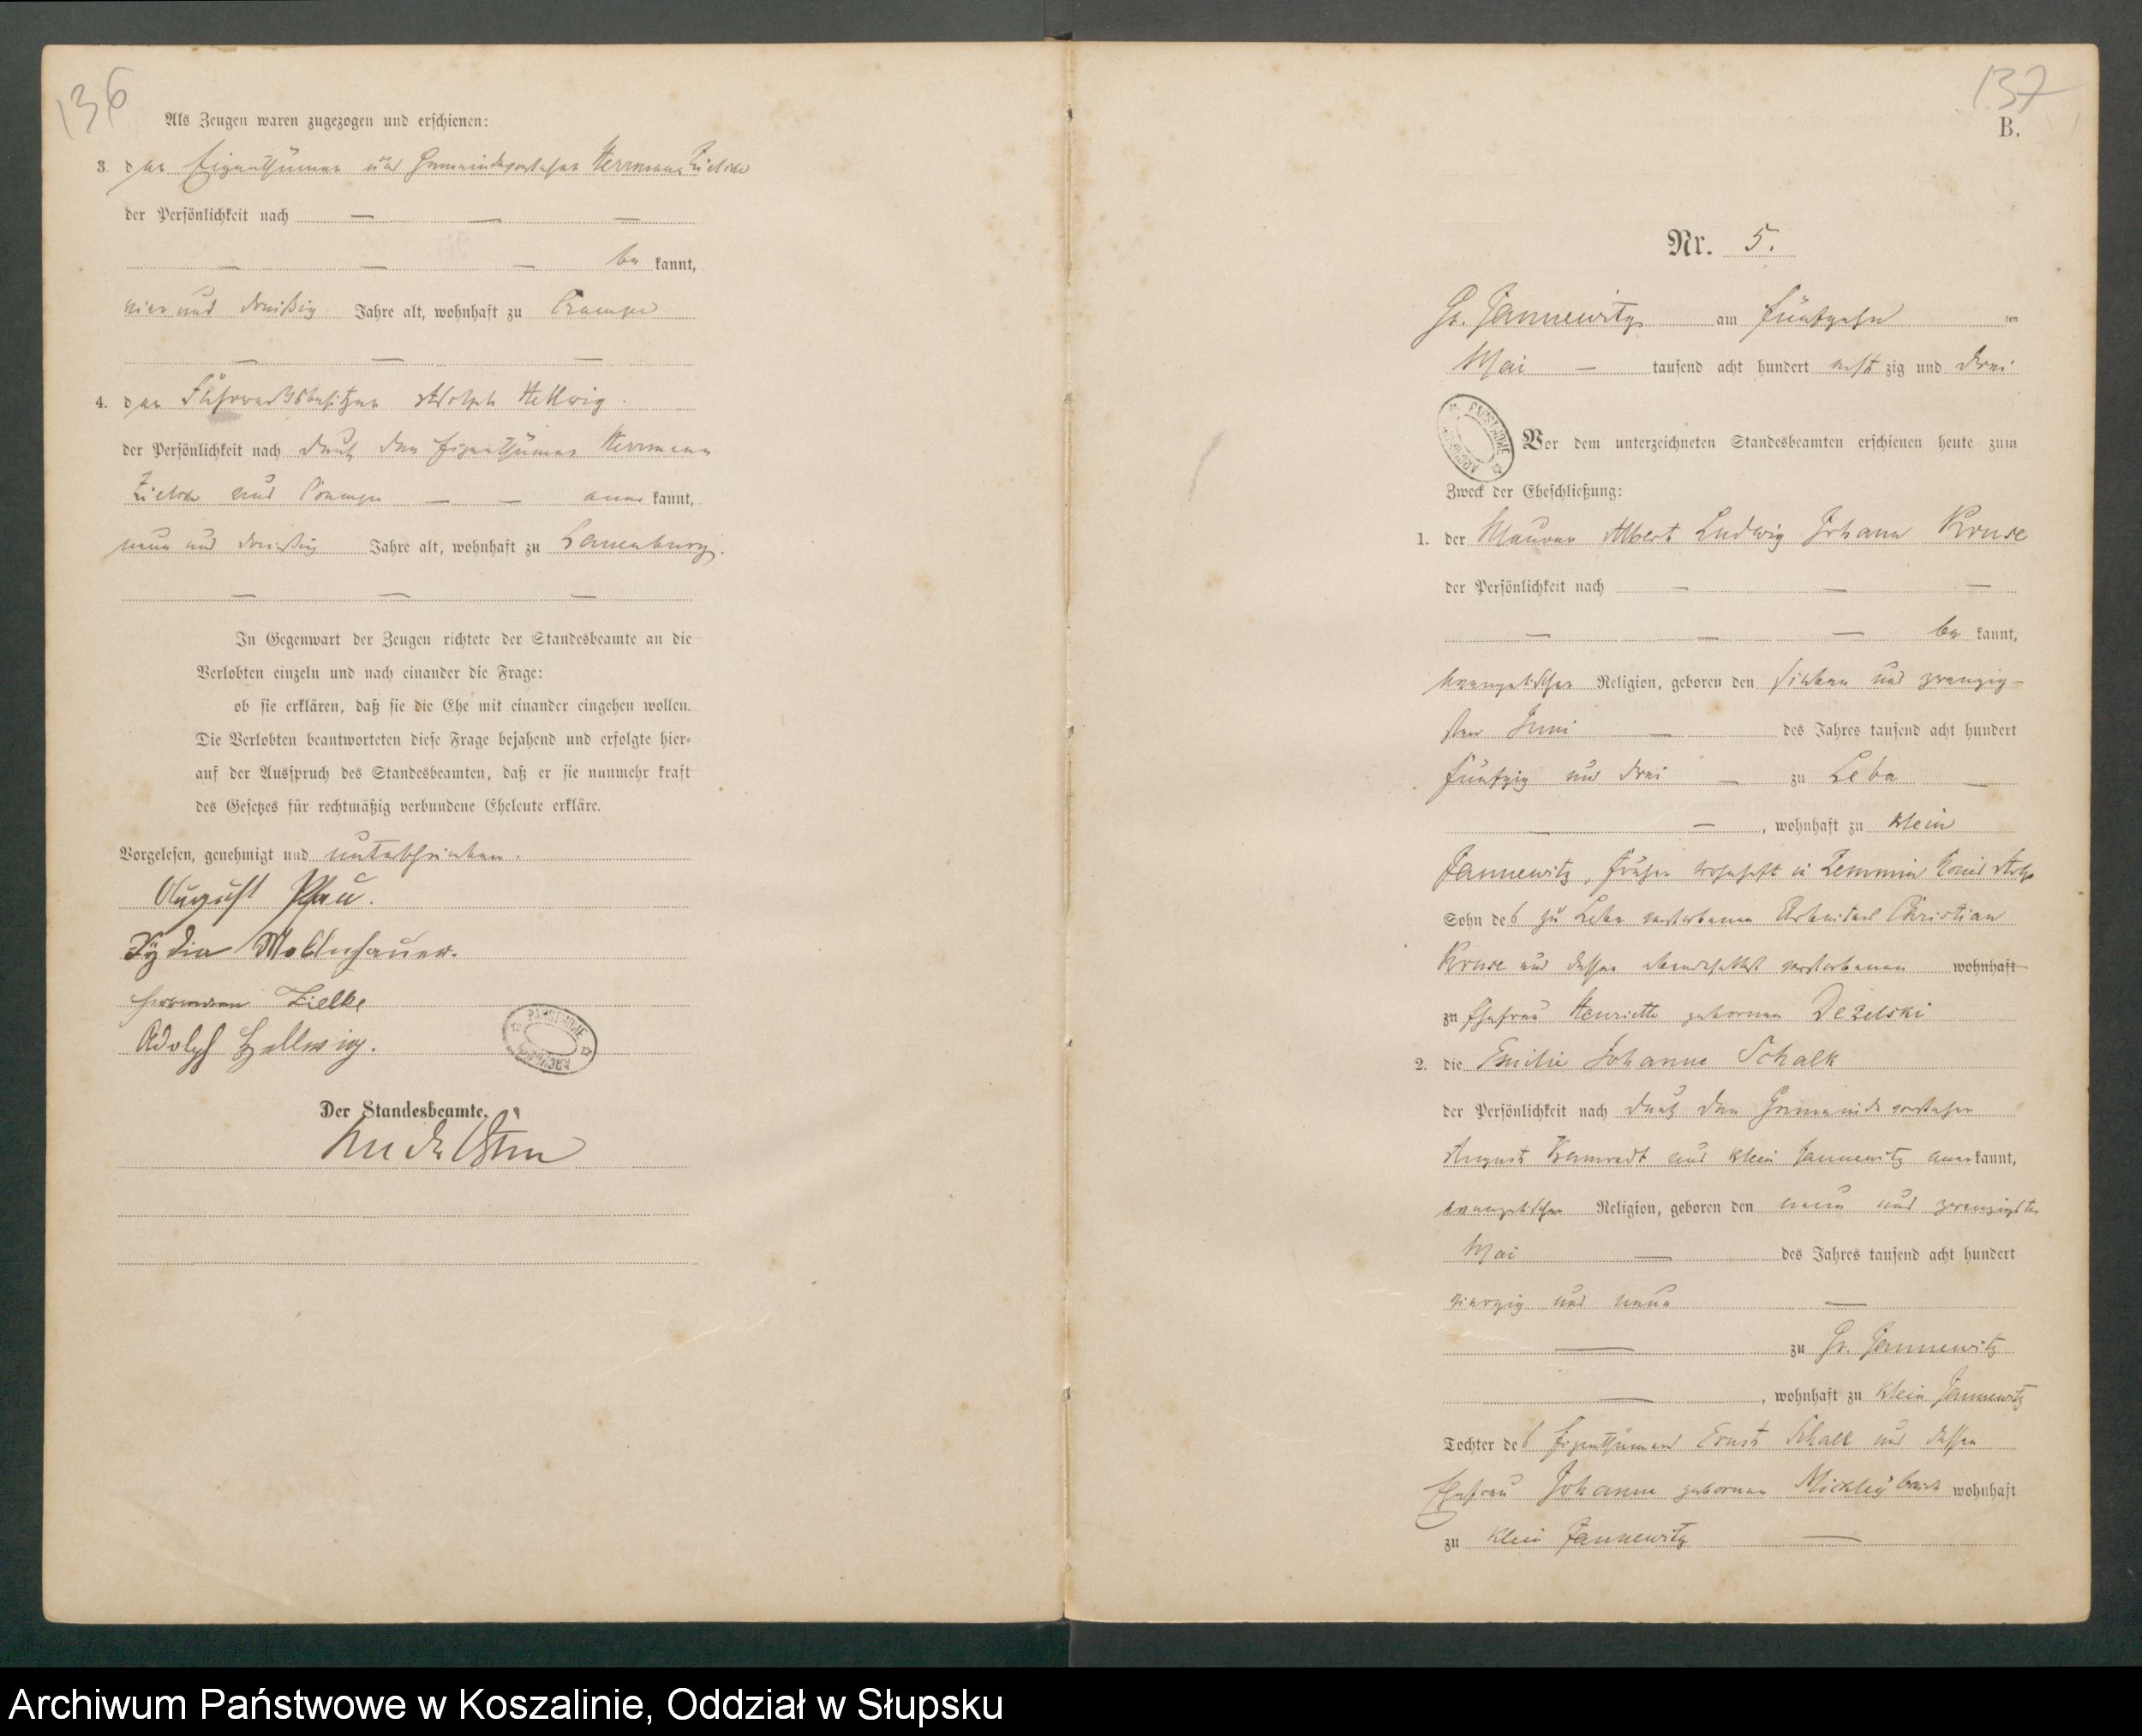 136
Als Zeugen waren zugezogen und erschienen:
3. der Eigenthümer und Gemeindevorsteher Herrmann Zielke
der Persönlichkeit nach — — —
— — — be kannt,
vier und dreißig Jahre alt, wohnhaft zu Crampe
— — —
4. der Fuhrwerksbesitzer Adolph Hellwig.
der Persönlichkeit nach durch den Eigenthümer Herrmann
Zielke aus Crampe — — aner kannt,
neun und dreißig Jahre alt, wohnhaft zu Lauenburg.
— — —
In Gegenwart der Zeugen richtete der Standesbeamte an die
Verlobten einzeln und nach einander die Frage:
ob sie erklären, daß sie die Ehe mit einander eingehen wollen.
Die Verlobten beantworteten diese Frage bejahend und erfolgte hier-
auf der Ausspruch des Standesbeamten, daß er sie nunmehr kraft
des Gesetzes für rechtmäßig verbundene Eheleute erkläre.
Vorgelesen, genehmigt und unterschrieben.
August Pfau.
Lydia Moldenhauer.
Herrmann Zielke
Adolph Hellwig.
Der Standesbeamte.
137
B.
Nr. 5.
Gr. Jannewitz am fünfzehn ten
Mai — tausend acht hundert acht zig und drei
Vor dem unterzeichneten Standesbeamten erschienen heute zum
Zweck der Eheschließung:
1. der Maurer Albert Ludwig Johann Kruse
der Persönlichkeit nach — — —
— — — be kannt,
evangelischer Religion, geboren den sieben und zwanzig-
sten Juni — des Jahres tausend acht hundert
fünfzig und drei — zu Leba —
— — , wohnhaft zu Klein
Jannewitz, früher wohnhaft in Zemmin Kreis Stolp
Sohn des zu Leba verstorbenen Arbeiters Christian
Kruse und dessen ebendaselbst verstorbenen wohnhaft
zu Ehefrau Henriette geborenen Dezelski
2. die Emilie Johanne Schalk
der Persönlichkeit nach durch den Gemeindevorsteher
August Kamradt aus Klein Jannewitz aner kannt,
evangelischer Religion, geboren den neun und zwanzigsten
Mai — des Jahres tausend acht hundert
vierzig und neun —
— zu Gr. Jannewitz
— , wohnhaft zu Klein Jannewitz
Tochter des Eigenthümers Ernst Schalk und dessen
Ehefrau Johanne geborenen wohnhaft
zu Klein Jannewitz —
Archiwum Państwowe w Koszalinie, Oddział w Słupsku